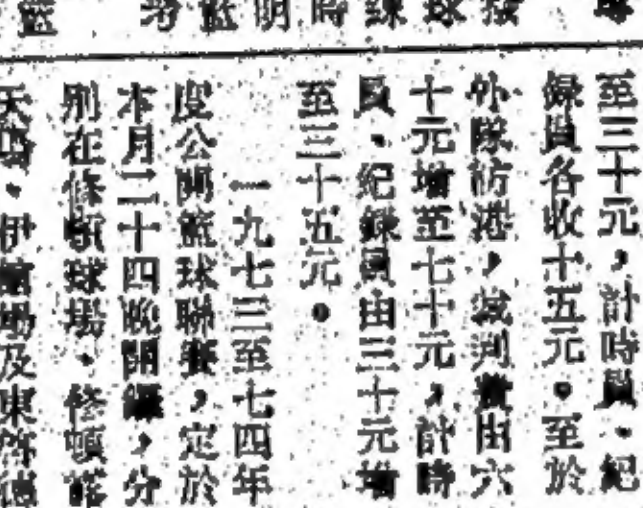 至三十元，計時員、紀
錄員各收十五元。至於
外隊訪港，裁判費由六
十元增至七十元，計時
員、紀錄員由三十元增
至三十五元。
一九七三至七四年
度公開籃球聯賽，定於
本月二十四晚開鑼，分
別在修頓球場、修頓
伊 場及東